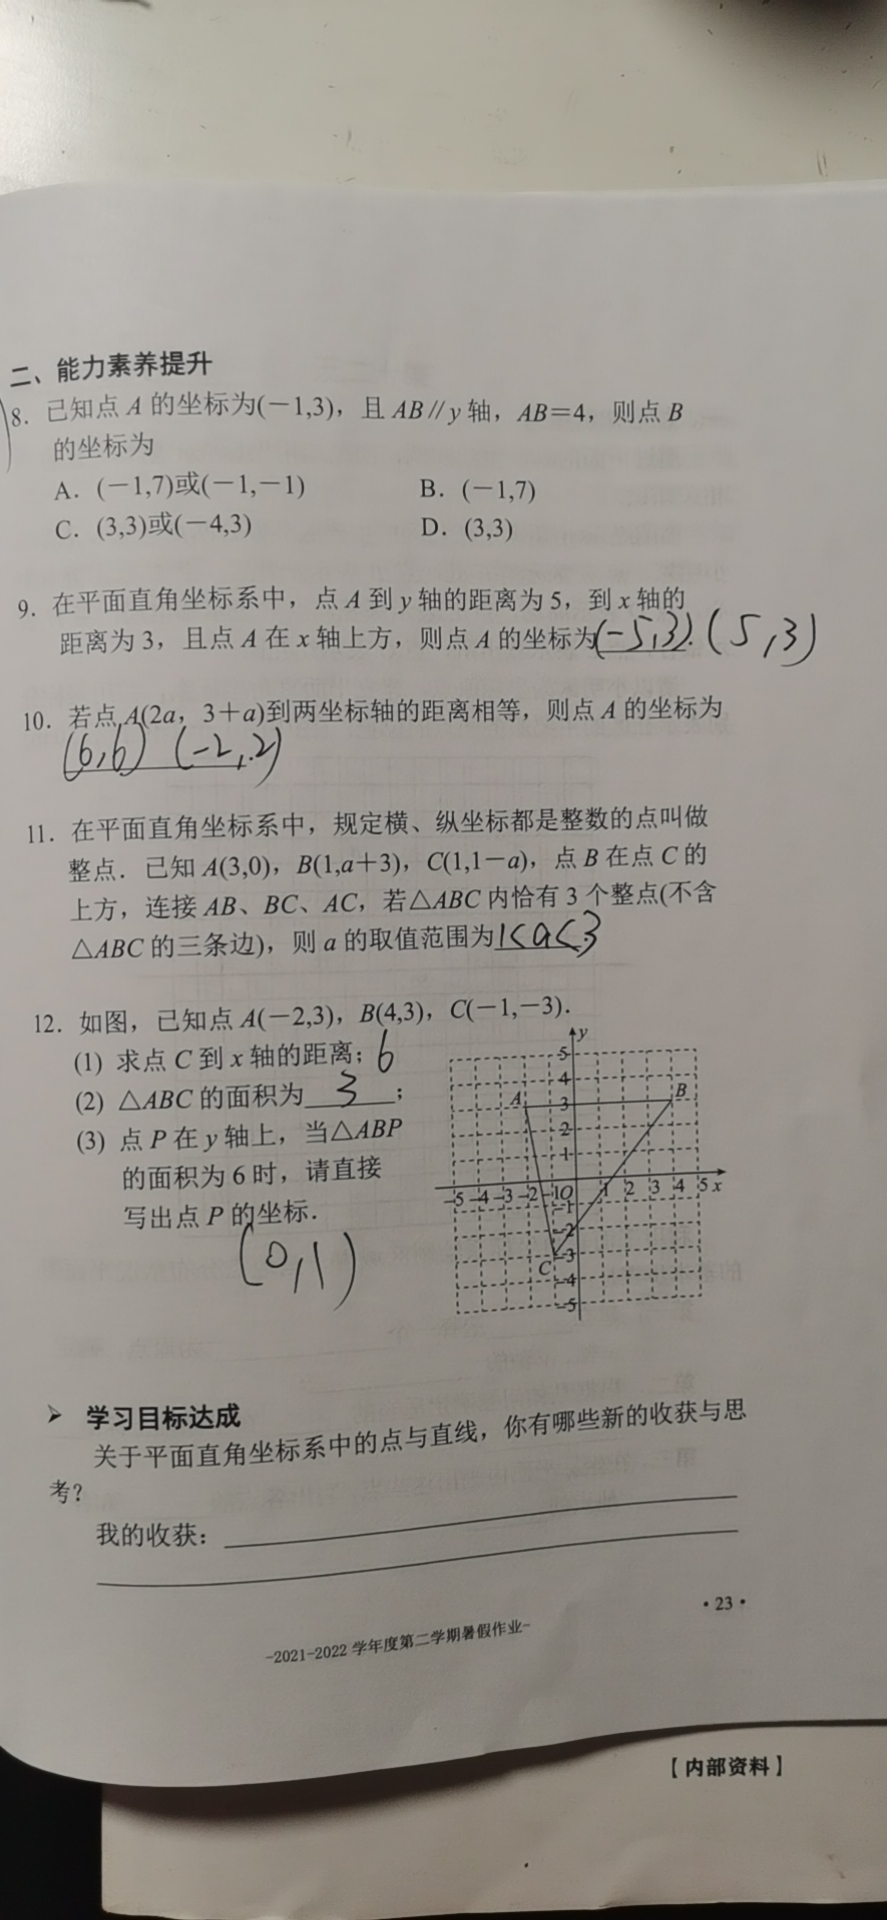 二、能力素养提升
8. 已知点 A 的坐标为(－1,3)，且 AB∥y 轴，AB=4，则点 B
的坐标为
A. (－1,7)或(－1,－1) B. (－1,7)
C. (3,3)或(－4,3) D. (3,3)
9. 在平面直角坐标系中，点 A 到 y 轴的距离为 5，到 x 轴的
距离为 3，且点 A 在 x 轴上方，则点 A 的坐标为(-5,3).(5,3)
10. 若点 A(2a，3＋a)到两坐标轴的距离相等，则点 A 的坐标为
(6,6) (-2,2)
11. 在平面直角坐标系中，规定横、纵坐标都是整数的点叫做
整点．已知 A(3,0)，B(1,a＋3)，C(1,1－a)，点 B 在点 C 的
上方，连接 AB、BC、AC，若△ABC 内恰有 3 个整点(不含
△ABC 的三条边)，则 a 的取值范围为1<a<3
12. 如图，已知点 A(－2,3)，B(4,3)，C(－1,－3).
(1) 求点 C 到 x 轴的距离；6
(2) △ABC 的面积为 3 ；
(3) 点 P 在 y 轴上，当△ABP
的面积为 6 时，请直接
写出点 P 的坐标．
(0,1)
y
5
4
A 3 B
2
1
-5 -4 -3 -2 -1 O 1 2 3 4 5 x
-1
-2
C -3
-4
-5
➢ 学习目标达成
关于平面直角坐标系中的点与直线，你有哪些新的收获与思
考？
我的收获：
·23·
-2021-2022 学年度第二学期暑假作业-
【内部资料】